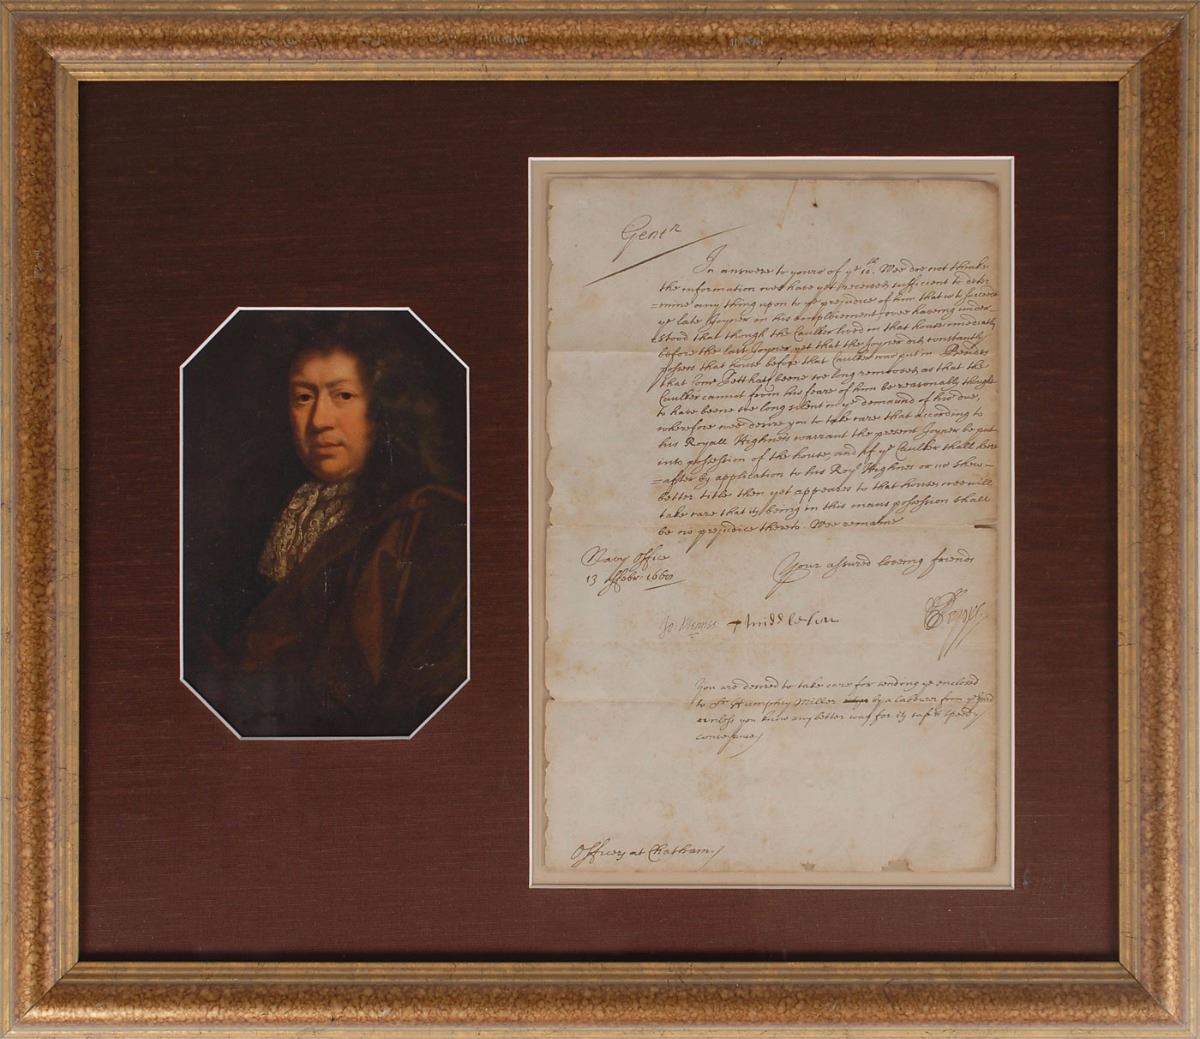 Gentn
In answere to yours of ye 12th. Wee doe not thinke
the information wee have yet received sufficient to deter
=mine any thing upon to ye prejudice of him that is to succeed
ye late Joyner in his imploiement, wee haveing under-
stood that though the Caulker lived in that house imediatly
before the last Joyner yet that the Joyner did constantly
possess that house before that Caulker was put in Besides
that Com: Pett hath beene soe long removed, as that the
Caulker cannot from his feare of him be reasonably thought
to have beene soe long silent in ye demaund of his due,
wherefore wee desire you to take care that according to
his Royall Highness warrant the present Joyner be put
into possession of the house, and if ye Caulker shall here
=after by application to his Royll Highnes or us shew
better title then yet appeares to that house wee will
take care that its being in this mans possession shall
be no prejudice thereto. Wee remaine
Your assured loveing friends
Navy Office
13 ffebr. 1668
Jo: Mennes TMiddleton SPepys.
You are desired to take care for sending ye enclosed
to Sr Humphry Miller by a labourer from ye yard
unless you know any better way for its safe & speedy
conveyance
Officers at Chatham